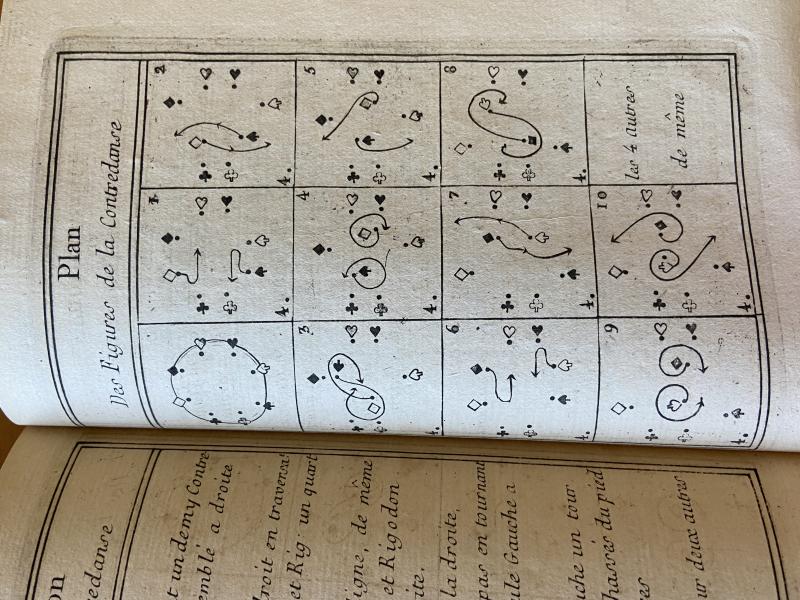 Plan
Des Figures de la Contredanse
1
2
4.
4.
3
4
5
4.
4.
4.
6
7
8
4.
4.
4.
9
10
les 4 autres
de même
4.
4.
on
redanse
t un demy Contre
emblé a droite
droit en travers
et Rig. un quart
igne, de même
et Rigodon
ite.
la droite,
pas en tournant
ule Gauche a
uche un tour
hassés du pied
res
ur deux autres